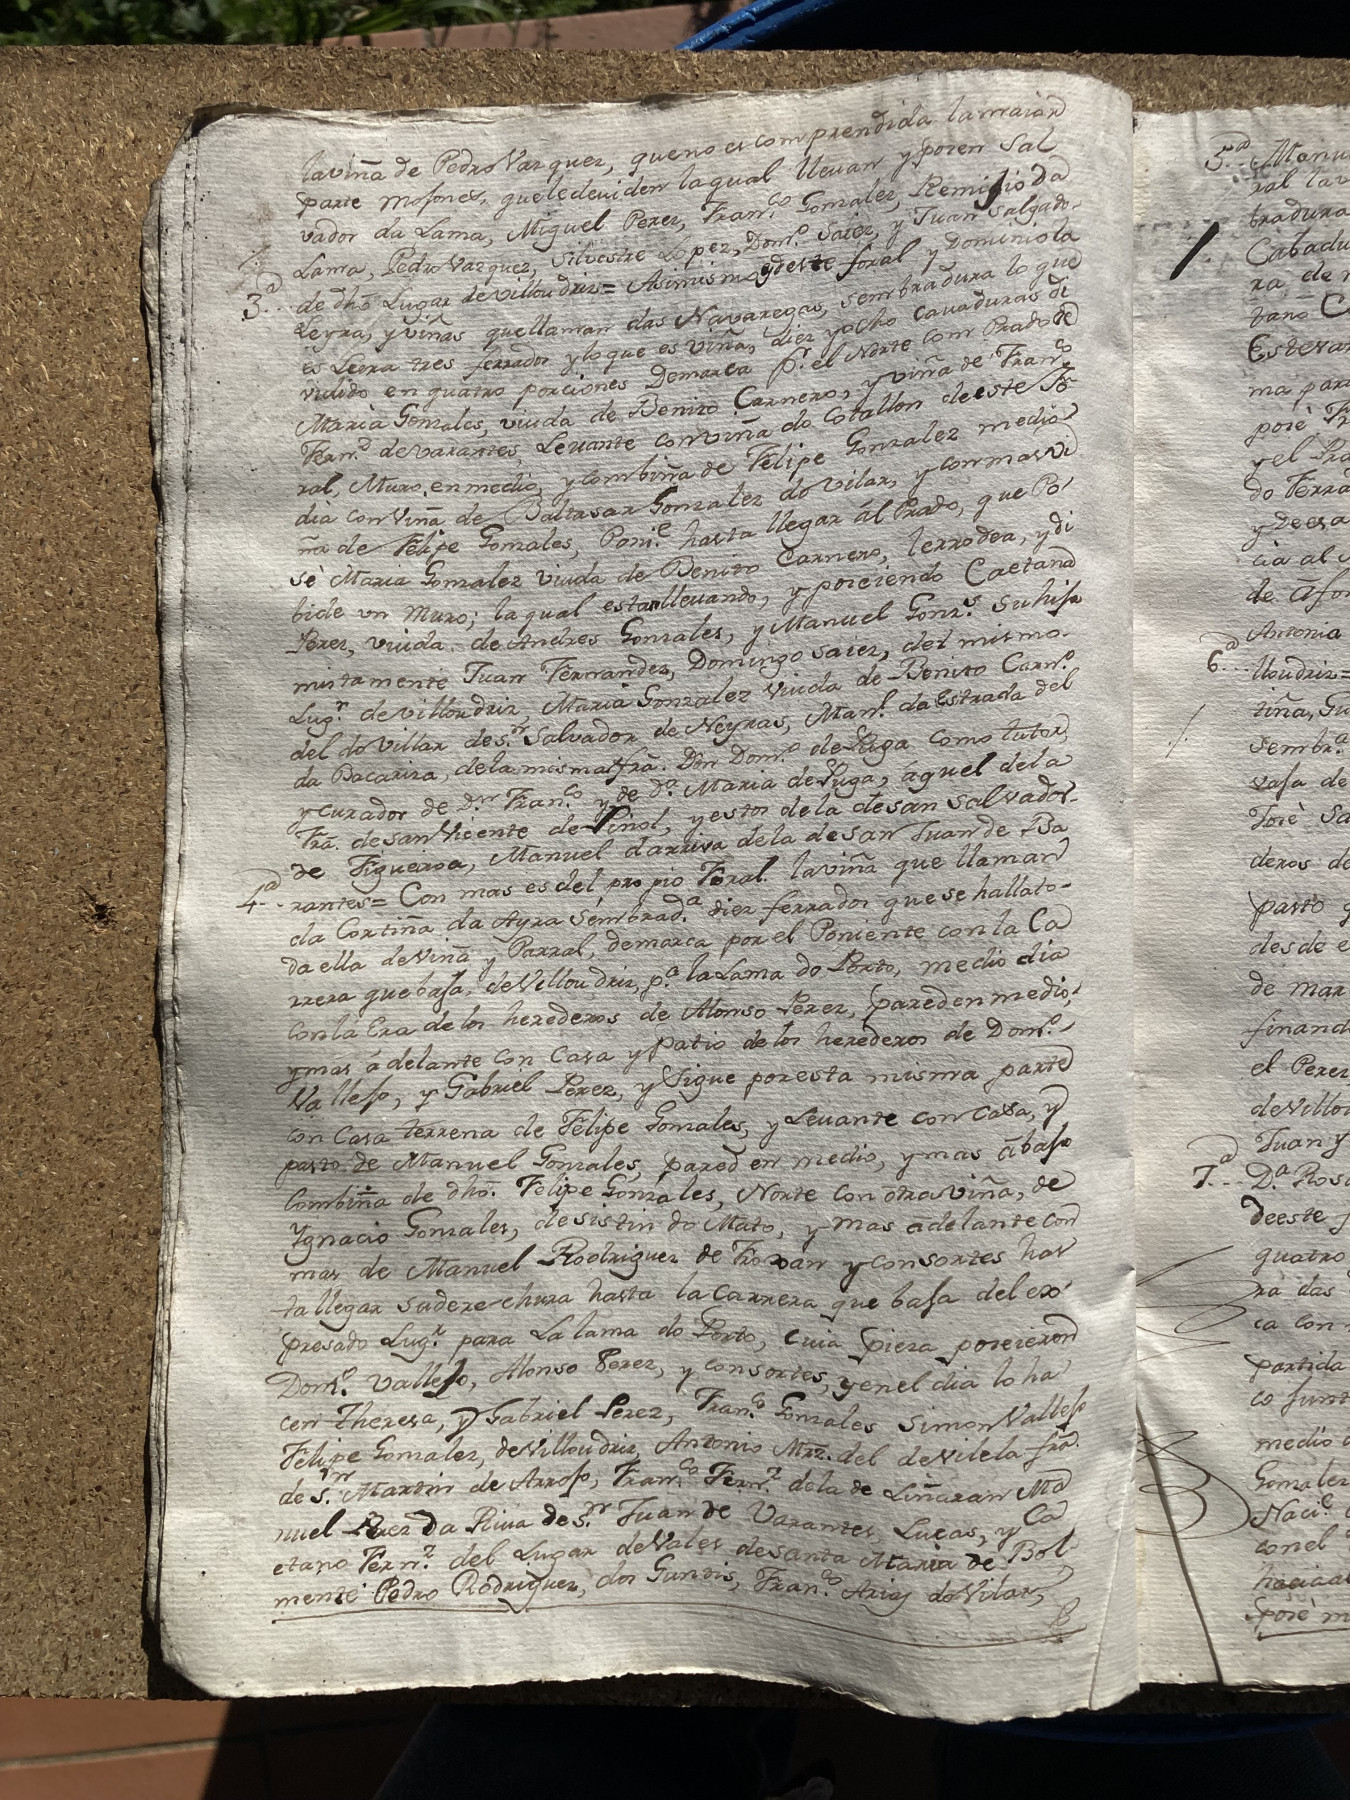 laviña de Pedro Vazquez, queno es comprendida lamaior
parte mosones, queledeviden laqual lleuan y poren Sal
vador da Lama, Miguel Perez, Fran.co Gonzalez, Remisio da
Lama, Pedro Vazquez, Silvestre Lopez, Dom.o Saiez, y Juan Salgado
3.a de dho Lugar de Villoudriz = Asimismo es deeste foral y Dominiola
Leyra, y viñas quellaman das Navaregas, sembradura lo que
es Leira tres ferrados y loque es viña, diez yocho cauaduras di
vidido en quatro porciones Demarca p.r el Norte com Prado de
Maria Gonzales, viuda de Benito Carnero, y viña de Fran.co
Fern.z de varantes, Levante conviña do Cotallon deeste Fo
ral, Muro enmedio, y combiña de Felipe Gonzalez medio
dia con Viña de Baltasar Gonzalez do Vilar, y conmas vi
ña de Felipe Gonzales, Poni.e hasta llegar ál Prado, que Po
sé Maria Gonzalez viuda de Benito Carnero, terrodea, y di
bide un Muro; la qual estanllevando, y poseiendo Caetana
Perez, viuda de Andres Gonzales, y Manuel Gonz.s Suhijo
mistamente Juan Fernandez, Domingo Saiez, del mismo
Lug.r de Villoudriz Maria Gonzalez viuda de Benito Carn.o
del do Villar de S.n Salvador de Neyras, Man.l da Estrada del
da Bacariza, dela misma fra. Don Dom.o de Puga como tutor,
y curador de D.n Fran.co y de D.a Maria de Puga, aquel dela
Fra. de San Vicente de Pinol, y estos dela desan Salvador
de Figueroa, Manuel darriva dela de San Juan de Ba
4.a rantes = Con mas es del propio Foral laviña que llaman
da Cortiña da Ayra Sembrad.a diez ferrados que se hallato
da ella de viña y Parral, demarca por el Poniente con la Ca
rrera que baja, de Villoudriz, p.a la Lama do Porto, medio dia
conla Era delos herederos de Alonso Perez, pared en medio,
ymas á delante con Casa y patio delos herederos de Dom.o
Vallejo, y Gabriel Perez, y Sigue poresta misma parte
con Casa terrena de Felipe Gonzales, y Levante con Casa, y
pasto de Manuel Gonzales, pared en medio, ymas ábajo
Combiña de dho. Felipe Gonzales, Norte con otra viña, de
Ygnacio Gonzales, desistin do Mato, y mas ádelante con
mas de Manuel Rodriguez de Froxan y consortes has
ta llegar Suderechura hasta la Carrera que baja del ex
presado Lug.r para La lama do Porto, cuia pieza poseieron
Dom.o Vallejo, Alonso Perez, y consortes, y en el dia lo ha
cen Theresa, y Gabriel Perez, Fran.co Gonzales Simon Vallejo
Felipe Gonzalez, de Villoudriz, Antonio Mrz. del de Vilela fra.
de S.n Martin de Arrojo, Fran.co Fern.z dela de Liñaran Ma
nuel da Riva de S.n Juan de Varantes, Lucas, y Ca
etano Fern.z del Lugar de Vales de Santa Maria de Bol
mente Pedro Rodriguez, dos Gundis, Fran.co Arias do Vilar,
5.a Manu
ral lav
bradura
Cabadu
ra de
Estevan
ma par
y el Pra
do Ferra
y Deesa
cia al
de Afon
Antonia
6.a lloudriz=
tiña, Gu
Sembr.a
vasa de
José Sa
deros de
pasto q
desde e
de mar
finand
el Perez
de Villou
Juan y
7.a D.a Rosa
deeste f
quatro
ra das
ca con
partida
co junt
medio
Gonzalez
Naci.e
con el
hacia al
posé m